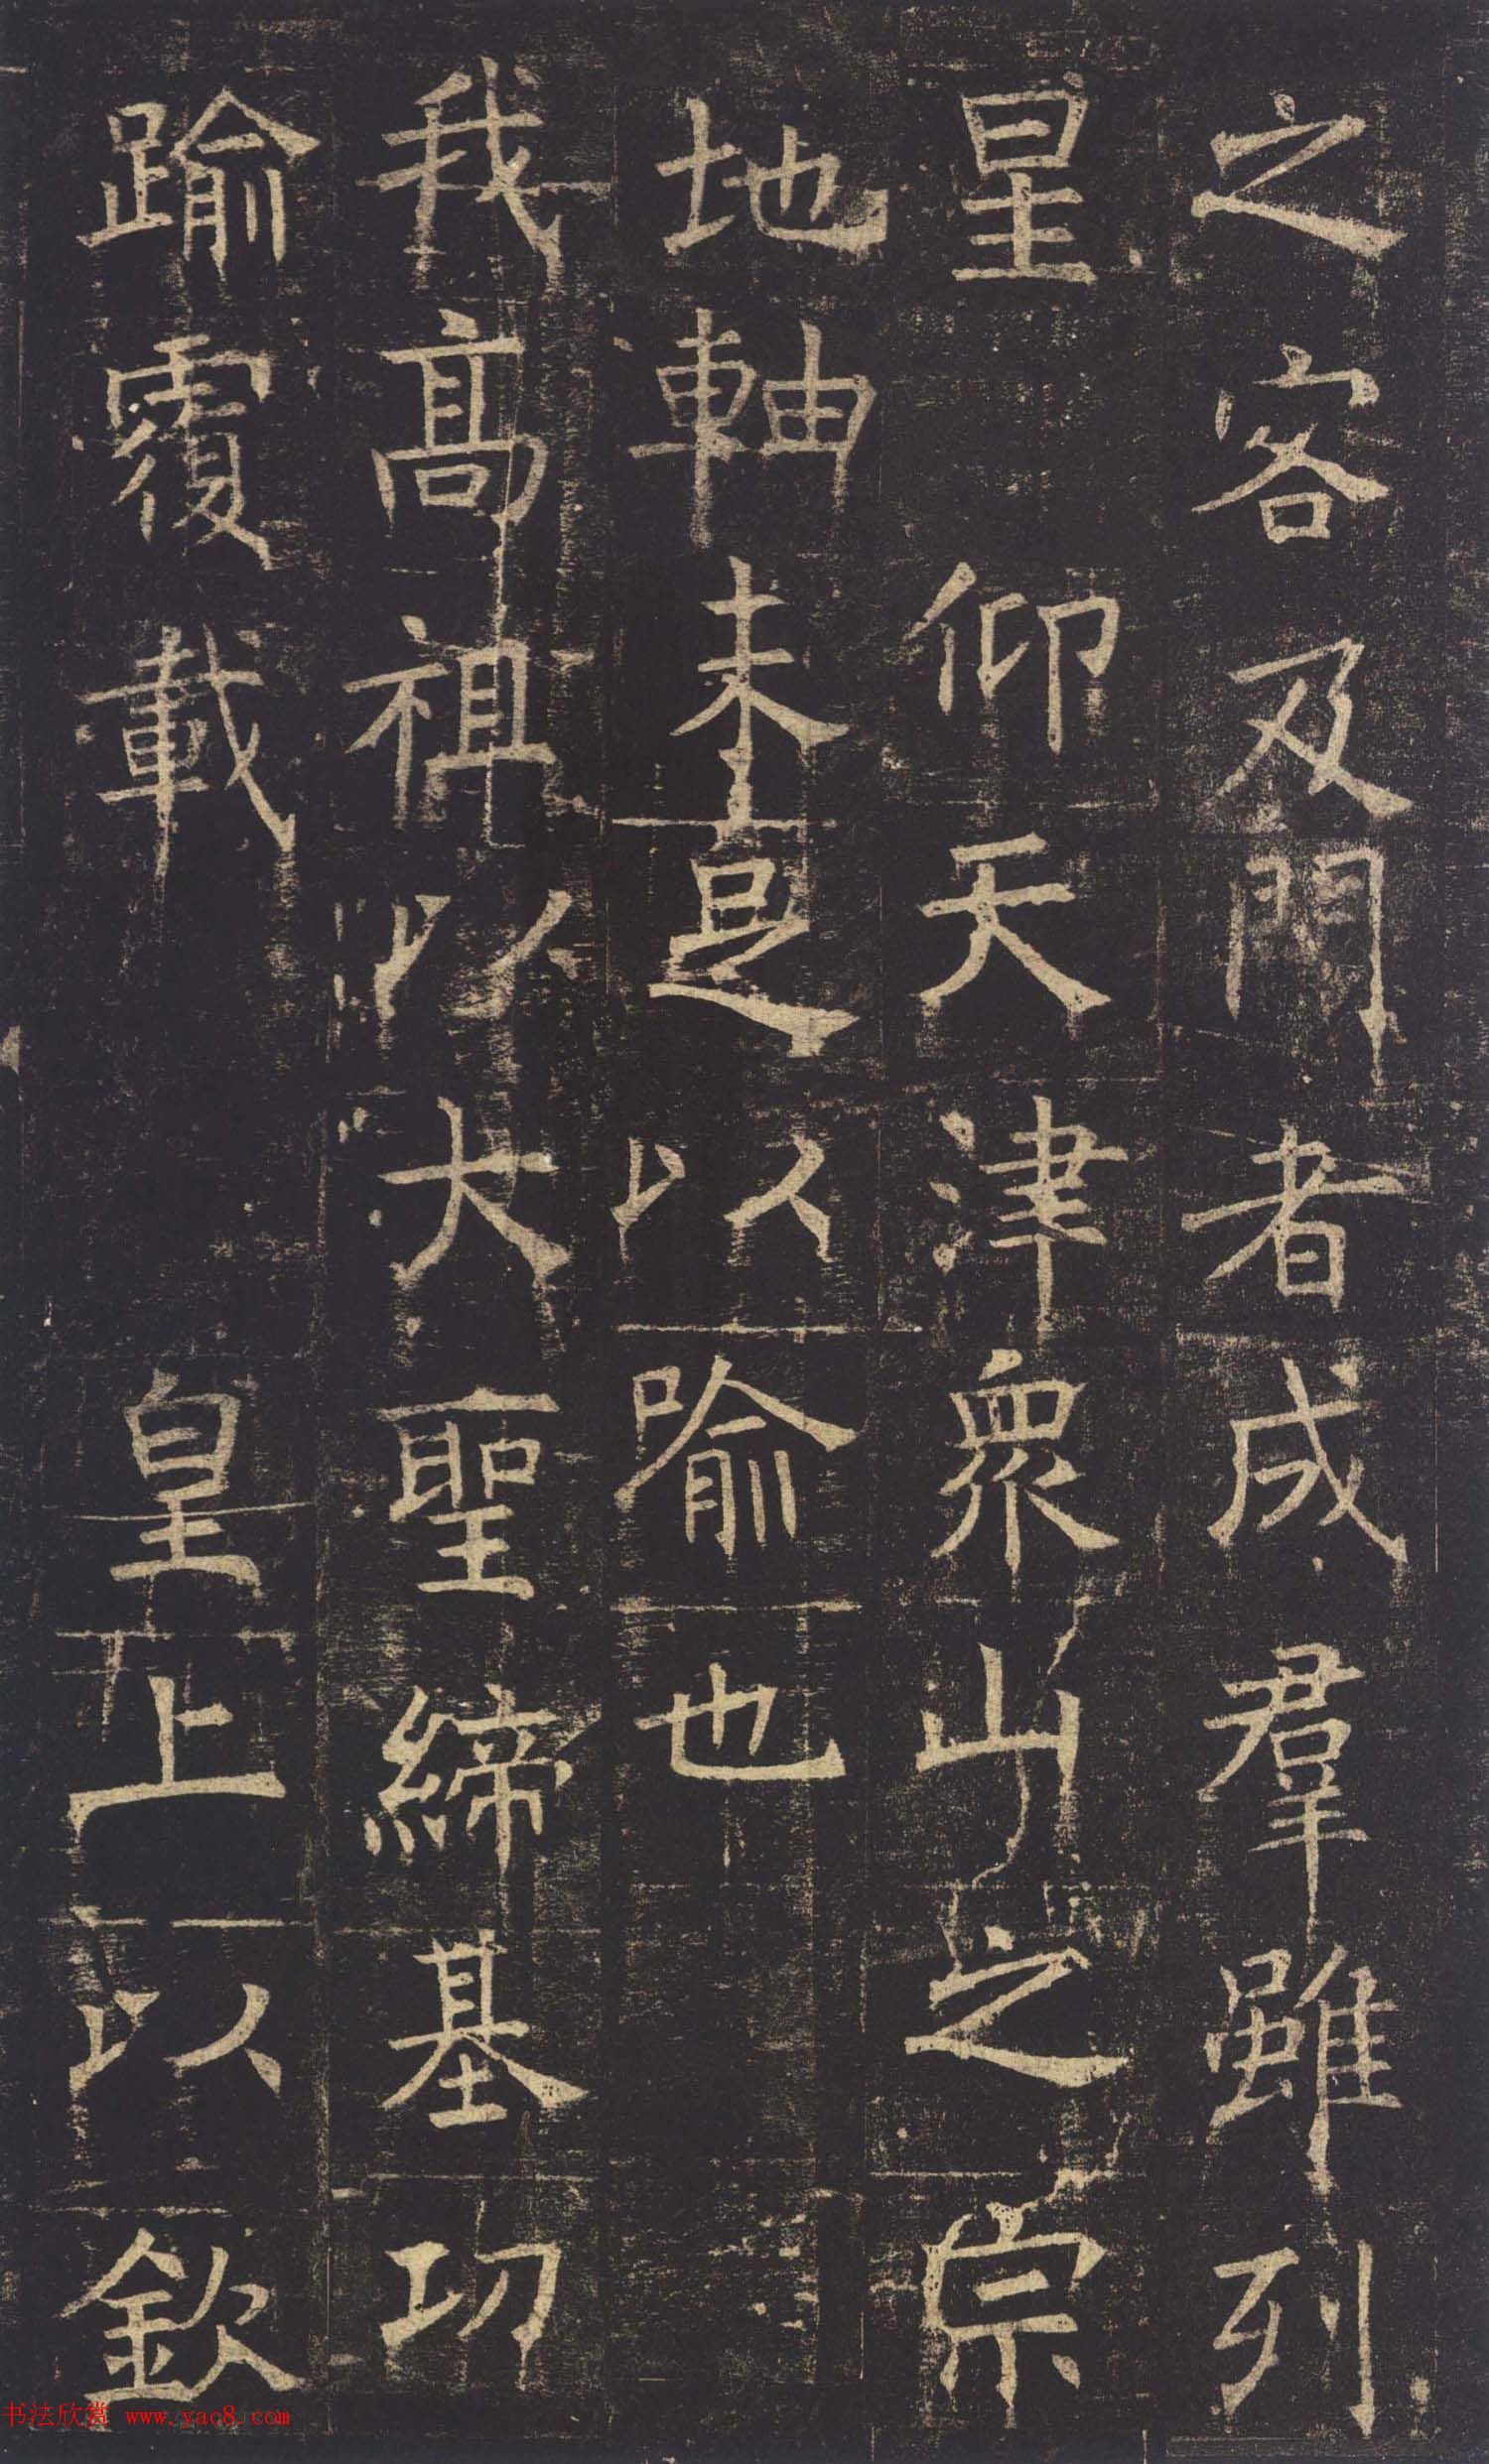 之客及門者成羣雖列
星仰天津衆山之宗
地軸未足以喻也
我高祖以大聖締基功
踰覆載皇上以欽
书法欣赏 www.yac8.com